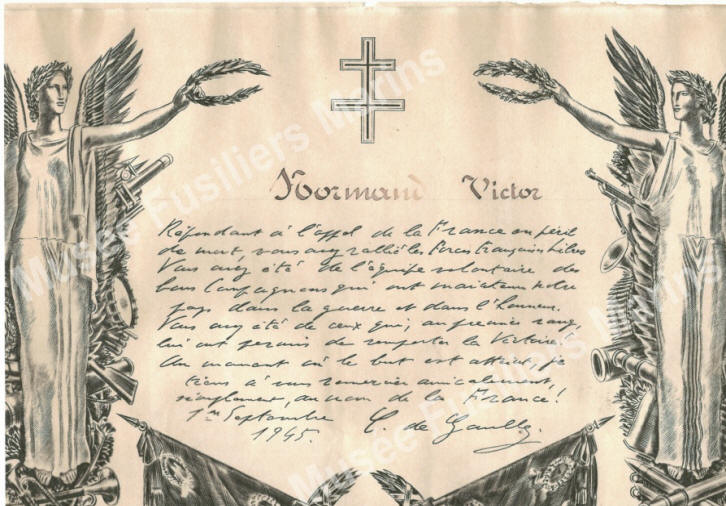 Normand Victor
Répondant à l'appel de la France en péril
de mort, vous avez rallié les Forces Françaises Libres
Vous avez été de l'équipe volontaire des
bons Compagnons qui ont maintenu notre
pays dans la guerre et dans l'honneur.
Vous avez été de ceux qui, au premier rang,
lui ont permis de remporter la Victoire!
Au moment où le but est atteint, je
tiens à vous remercier amicalement,
simplement, au nom de la France!
1er Septembre
1945.
C. de Gaulle.
Musée Fusiliers Marins
Musée Fusiliers Marins
Musée Fusiliers Marins